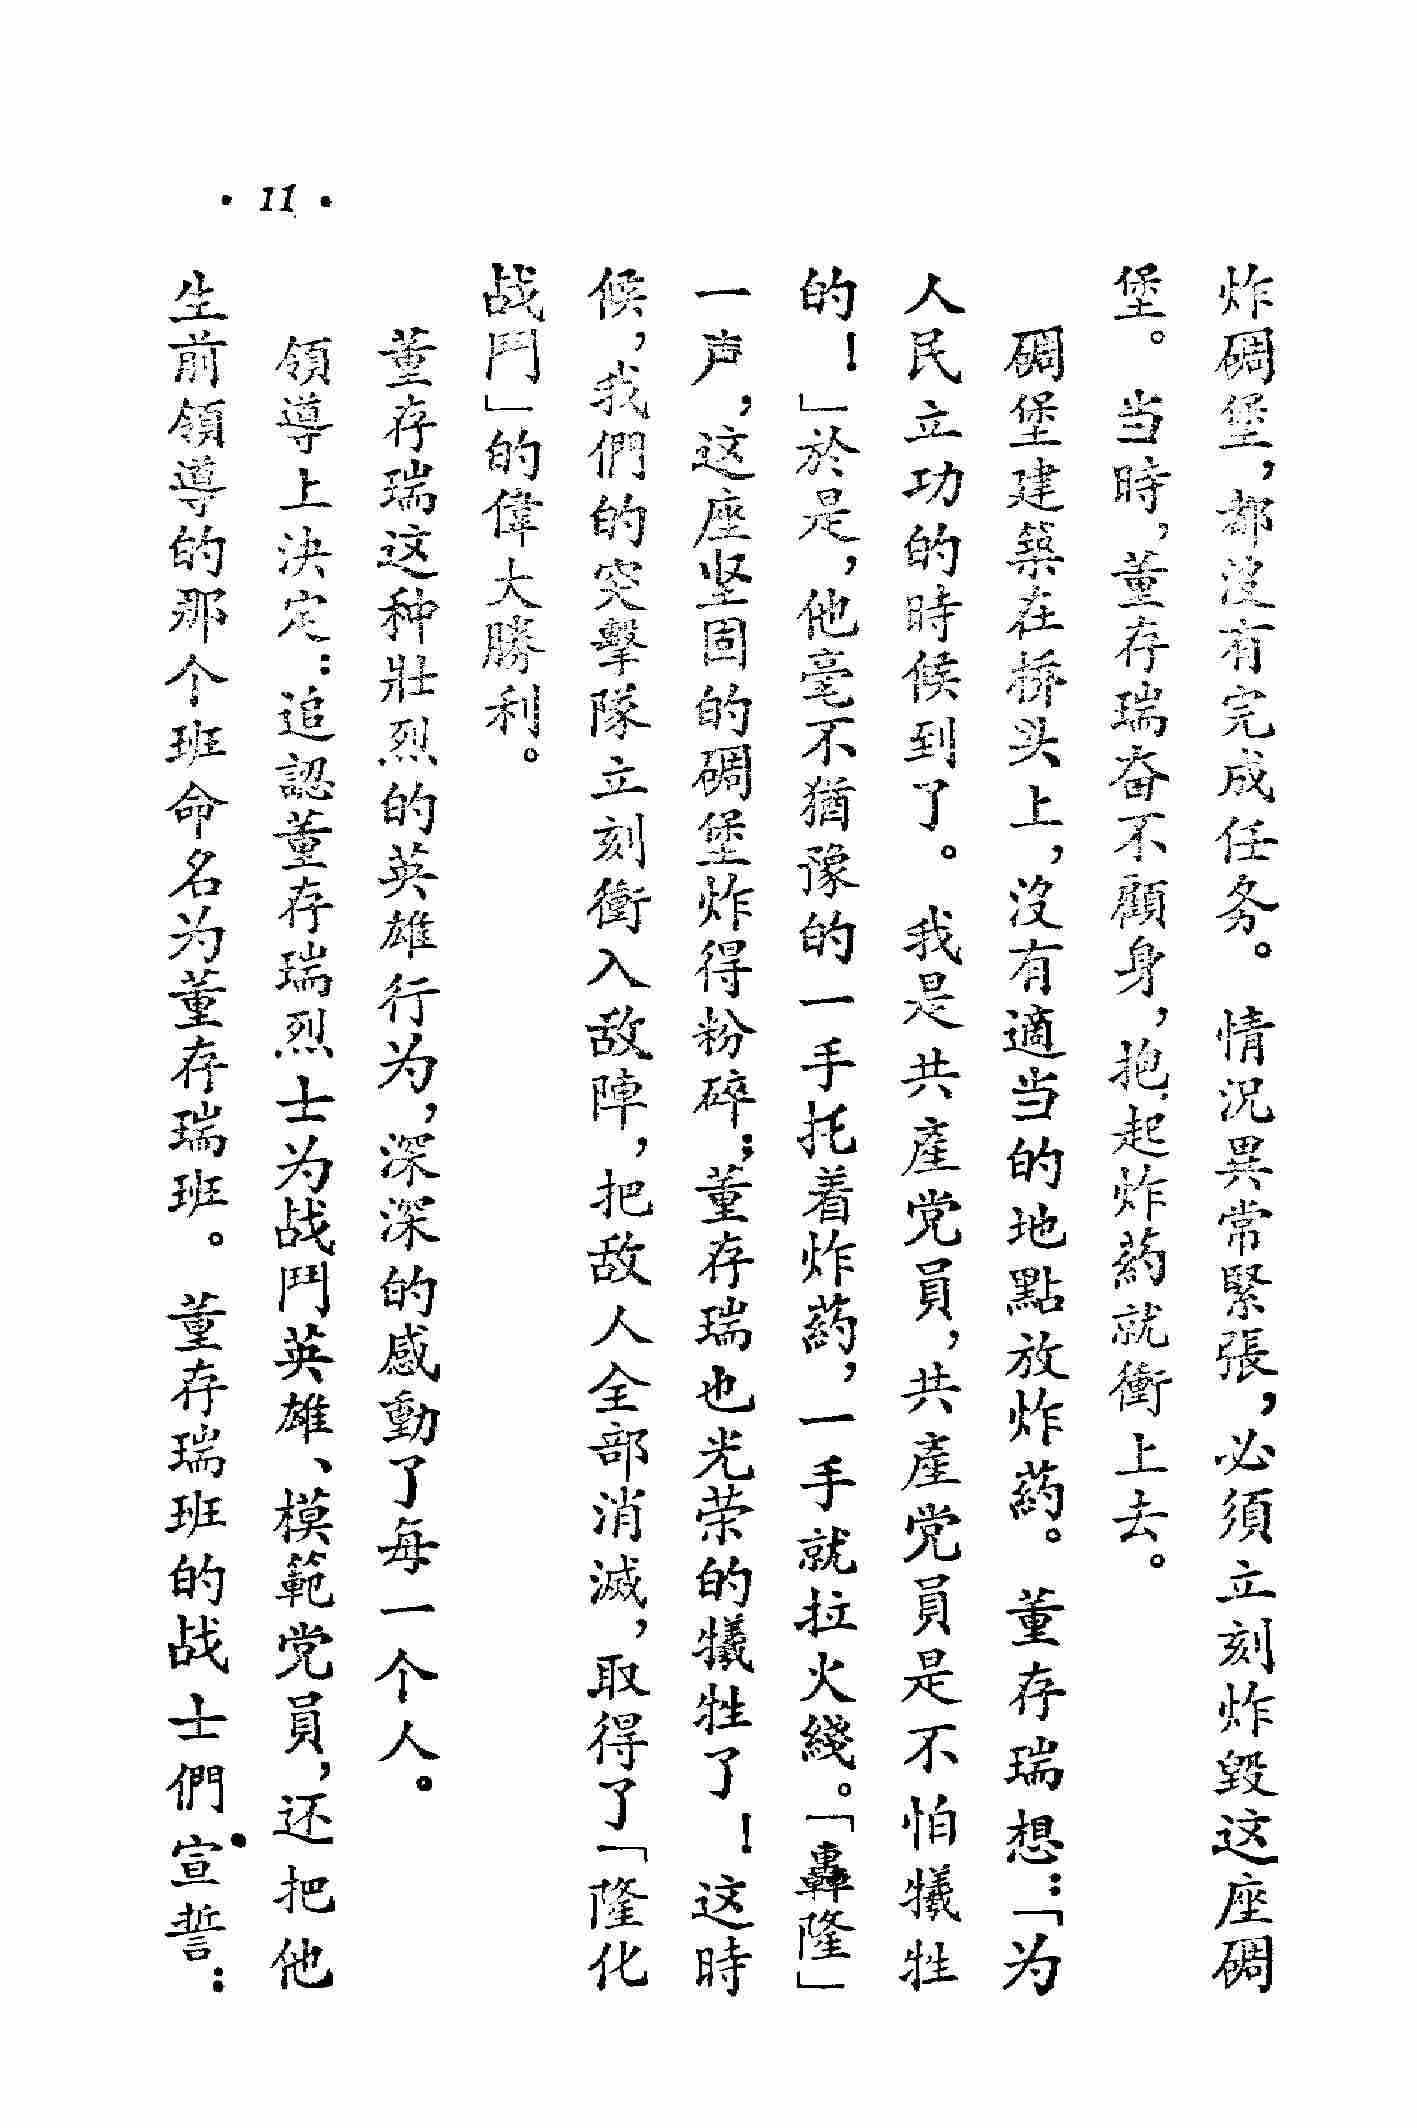 · 11 ·
炸碉堡，都沒有完成任务。情况異常緊張，必須立刻炸毀这座碉
堡。当時，董存瑞奋不顧身，抱起炸葯就衝上去。
碉堡建築在桥头上，沒有適当的地點放炸葯。董存瑞想：「为
人民立功的時候到了。我是共產党員，共產党員是不怕犧牲
的！」於是，他毫不猶豫的一手托着炸葯，一手就拉火綫。「轟隆」
一声，这座坚固的碉堡炸得粉碎；董存瑞也光荣的犧牲了！这時
候，我們的突擊隊立刻衝入敌陣，把敌人全部消滅，取得了「隆化
战鬥」的偉大勝利。
董存瑞这种壯烈的英雄行为，深深的感動了每一个人。
領導上决定：追認董存瑞烈士为战鬥英雄、模範党員，还把他
生前領導的那个班命名为董存瑞班。董存瑞班的战士們宣誓：